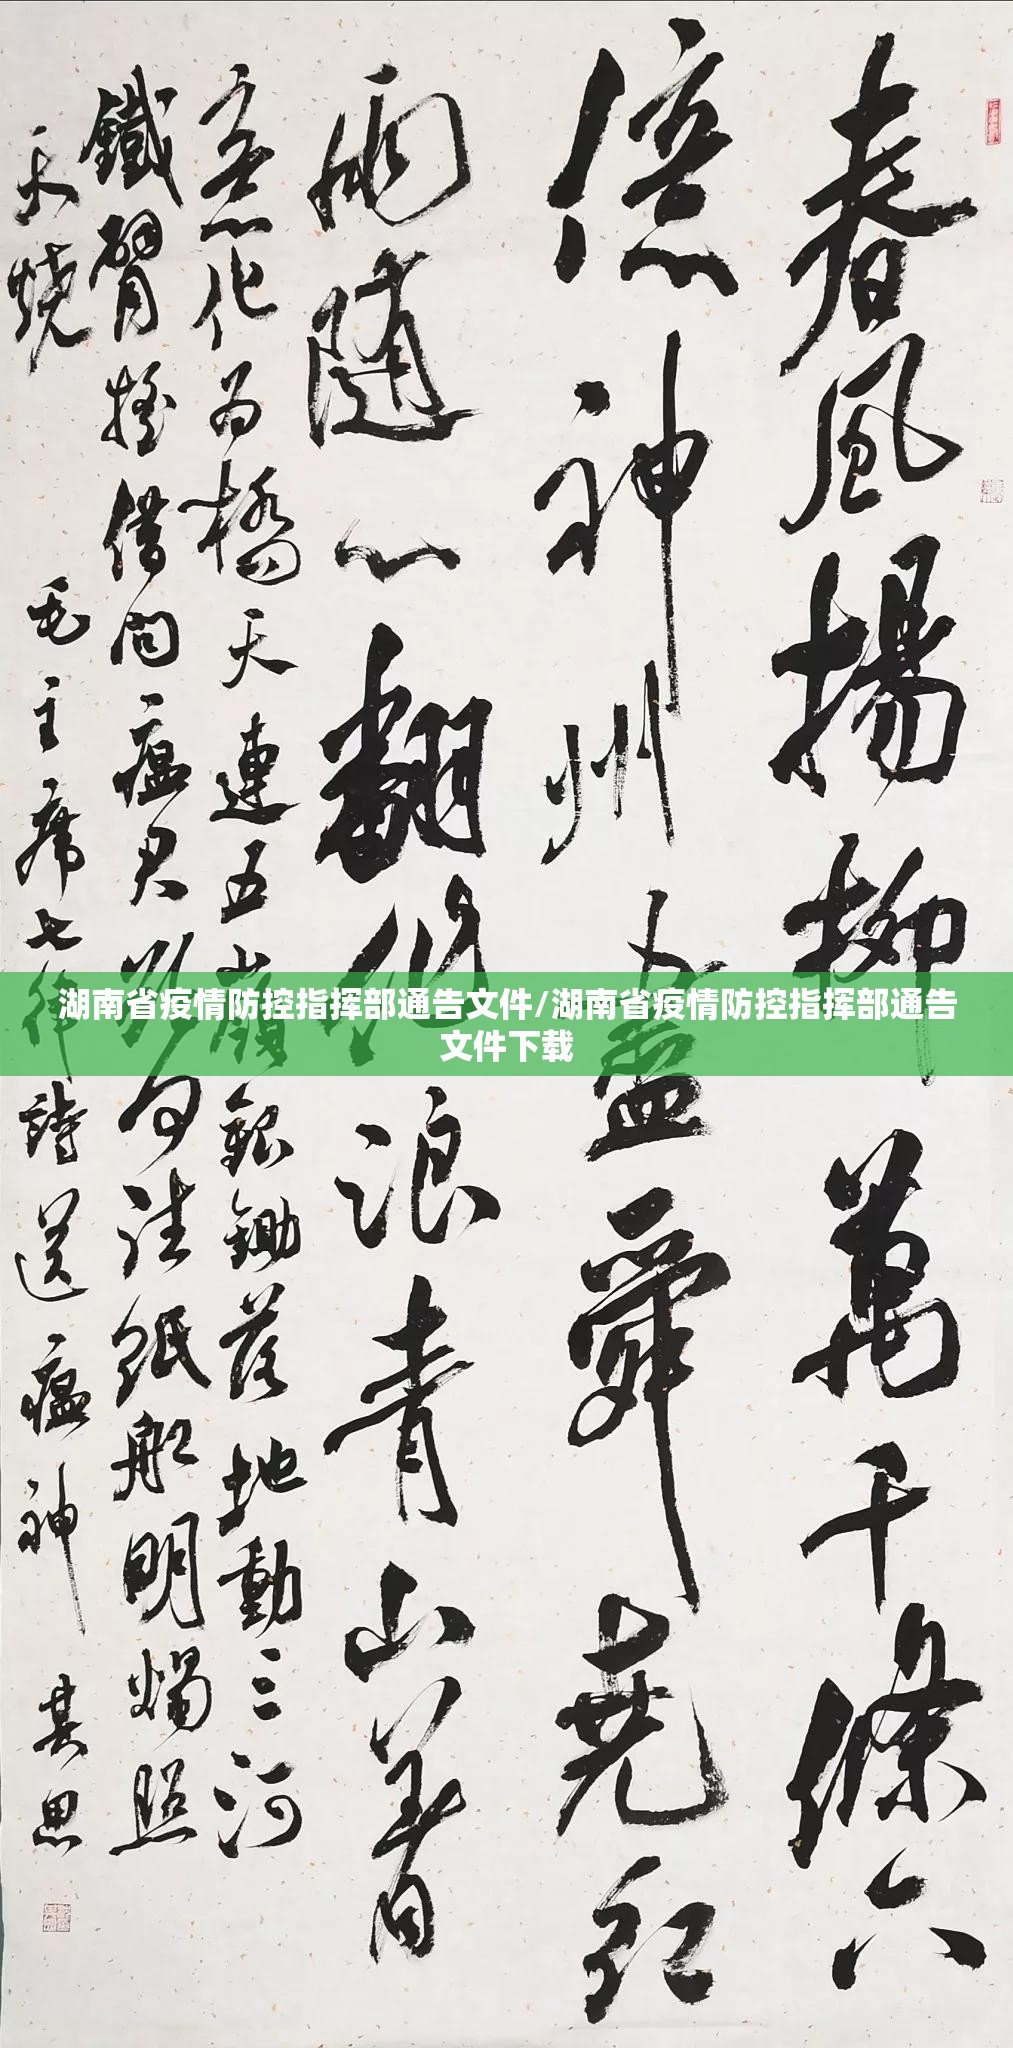 春風揚柳萬千條六
億神州人盡舜堯紅
雨随心翻作浪青山着
意化为橋天連五嶺銀鋤落地動三河
鐵臂摇借問瘟君欲何往紙船明燭照
天燒 毛主席七律詩送瘟神 其思
湖南省疫情防控指挥部通告文件/湖南省疫情防控指挥部通告
文件下载